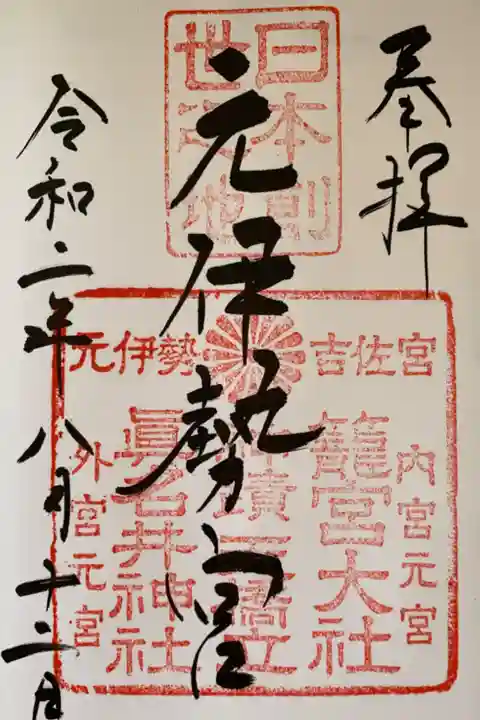 奉拝
日本創
世之地
元伊勢宮
吉佐宮
元伊勢
内宮元宮
籠宮大社
神蹟天橋立
眞名井神社
外宮元宮
令和二年八月十二日